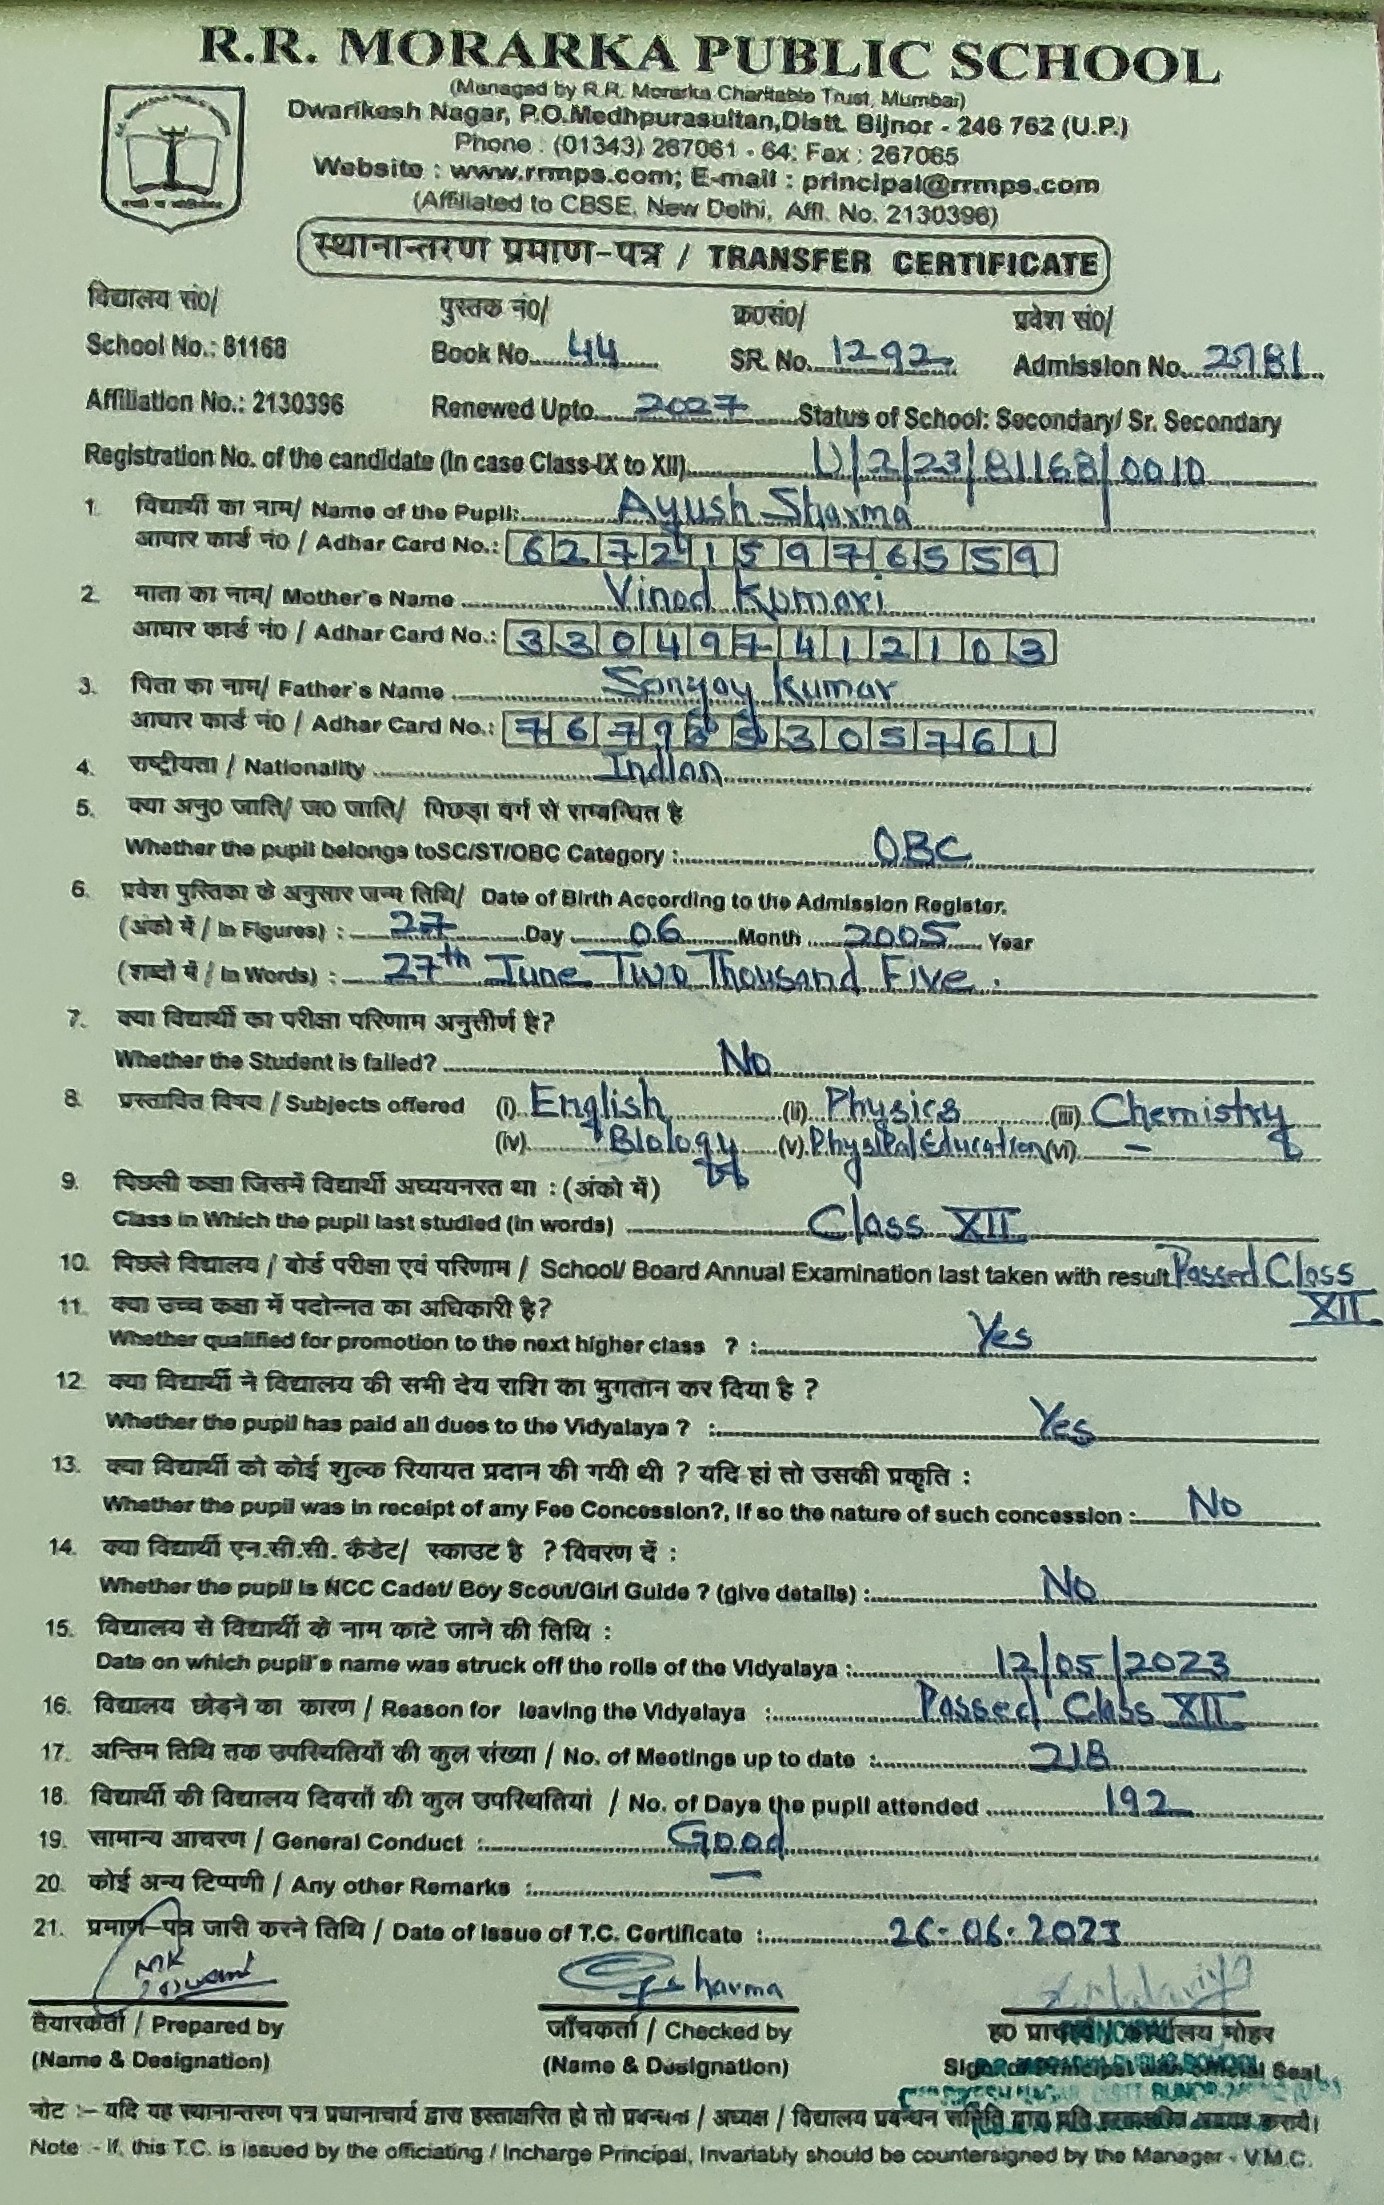 R.R. MORARKA PUBLIC SCHOOL
(Managed by R.R. Morarka Charitable Trust, Mumbai)
Dwarikesh Nagar, P.O.Medhpurasultan,Distt. Bijnor - 246 762 (U.P.)
Phone : (01343) 267061 - 64; Fax : 267065
Website : www.rrmps.com; E-mail : principal@rrmps.com
(Affiliated to CBSE, New Delhi, Affl. No. 2130396)
स्थानान्तरण प्रमाण-पत्र / TRANSFER CERTIFICATE
विद्यालय सं0/ पुस्तक नं0/ क्र0सं0/ प्रवेश सं0/
School No.: 81168 Book No. 44 SR. No. 1292 Admission No. 2781
Affiliation No.: 2130396 Renewed Upto 2027 Status of School: Secondary/ Sr. Secondary
Registration No. of the candidate (In case Class-IX to XII) U/2/23/81168/0010
1. विद्यार्थी का नाम/ Name of the Pupil: Ayush Sharma
आधार कार्ड नं0 / Adhar Card No.: 627215976559
2. माता का नाम/ Mother's Name Vinod Kumari
आधार कार्ड नं0 / Adhar Card No.: 330497412103
3. पिता का नाम/ Father's Name Sanjay Kumar
आधार कार्ड नं0 / Adhar Card No.:
4. राष्ट्रीयता / Nationality Indian
5. क्या अनु0 जाति/ ज0 जाति/ पिछड़ा वर्ग से सम्बन्धित है
Whether the pupil belongs toSC/ST/OBC Category : OBC
6. प्रवेश पुस्तिका के अनुसार जन्म तिथि/ Date of Birth According to the Admission Register.
(अंको में / In Figures) : 27 Day 06 Month 2005 Year
(शब्दों में / In Words) : 27th June Two Thousand Five.
7. क्या विद्यार्थी का परीक्षा परिणाम अनुत्तीर्ण है?
Whether the Student is failed? No
8. प्रस्तावित विषय / Subjects offered (i) English (ii) Physics (iii) Chemistry
(iv) Biology (v) Physical Education (vi) –
9. पिछली कक्षा जिसमें विद्यार्थी अध्ययनरत था : (अंको में)
Class in Which the pupil last studied (in words) Class XII
10. पिछले विद्यालय / बोर्ड परीक्षा एवं परिणाम / School/ Board Annual Examination last taken with result Passed Class XII
11. क्या उच्च कक्षा में पदोन्नत का अधिकारी है?
Whether qualified for promotion to the next higher class ? : Yes
12. क्या विद्यार्थी ने विद्यालय की सभी देय राशि का भुगतान कर दिया है ?
Whether the pupil has paid all dues to the Vidyalaya ? : Yes
13. क्या विद्यार्थी को कोई शुल्क रियायत प्रदान की गयी थी ? यदि हां तो उसकी प्रकृति :
Whether the pupil was in receipt of any Fee Concession?, If so the nature of such concession : No
14. क्या विद्यार्थी एन.सी.सी. कैडेट/ स्काउट है ? विवरण दें :
Whether the pupil is NCC Cadet/ Boy Scout/Girl Guide ? (give details) : No
15. विद्यालय से विद्यार्थी के नाम काटे जाने की तिथि :
Date on which pupil's name was struck off the rolls of the Vidyalaya : 12/05/2023
16. विद्यालय छोड़ने का कारण / Reason for leaving the Vidyalaya : Passed Class XII
17. अन्तिम तिथि तक उपस्थितियों की कुल संख्या / No. of Meetings up to date : 218
18. विद्यार्थी की विद्यालय दिवसों की कुल उपस्थितियां / No. of Days the pupil attended 192
19. सामान्य आचरण / General Conduct : Good
20. कोई अन्य टिप्पणी / Any other Remarks : –
21. प्रमाण-पत्र जारी करने तिथि / Date of Issue of T.C. Certificate : 26-06-2023
तैयारकर्ता / Prepared by जाँचकर्ता / Checked by ह0 मोहर
(Name & Designation) (Name & Designation) Seal
नोट :- यदि यह स्थानान्तरण पत्र प्रधानाचार्य द्वारा हस्ताक्षरित हो तो प्रबन्धक / अध्यक्ष / विद्यालय प्रबन्धन समिति द्वारा करायें।
Note :- If, this T.C. is issued by the officiating / Incharge Principal, Invariably should be countersigned by the Manager - V.M.C.